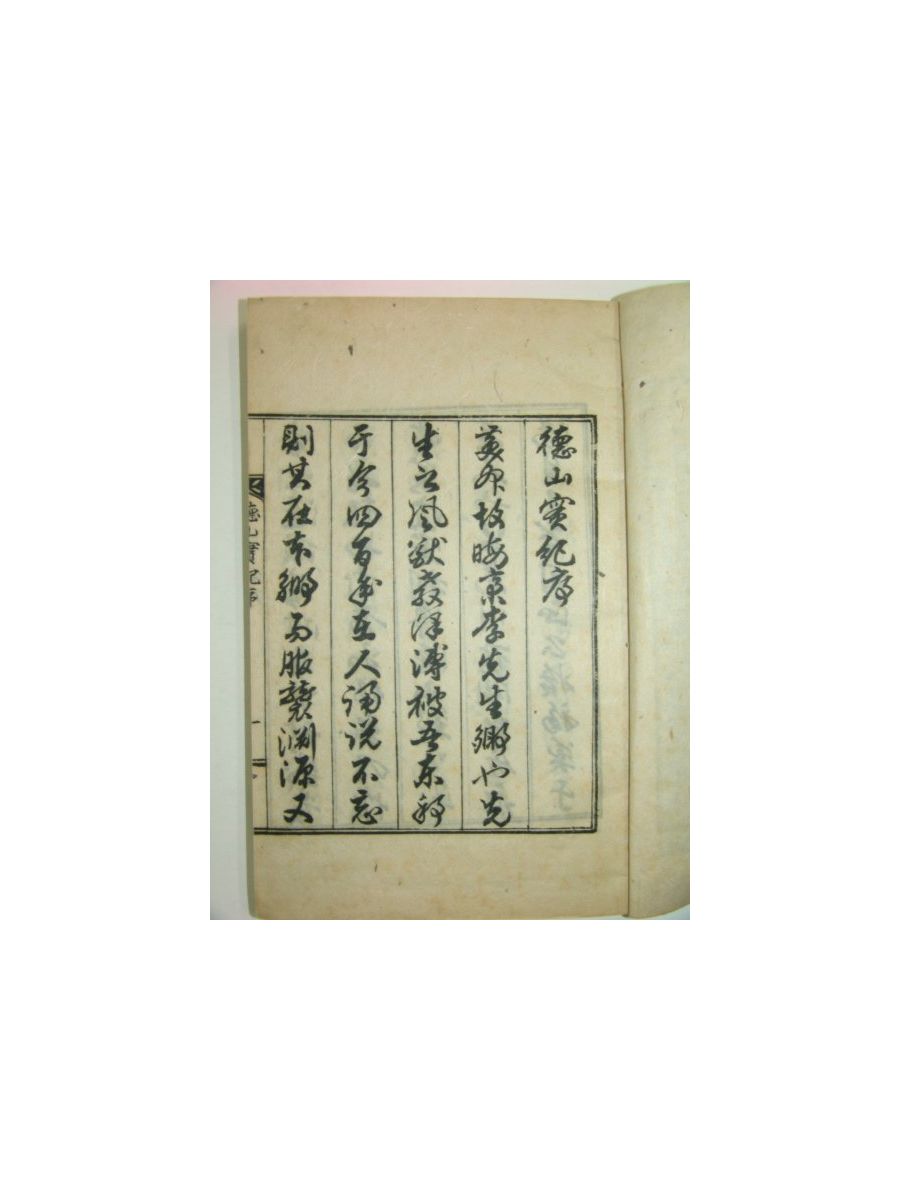 德山實紀序
故晦李先生鄉也先
生之風猷敎澤溥被吾東
于今四百年在人誦說不忘
則其在本鄉而服襲淵源又
德山實記序
一